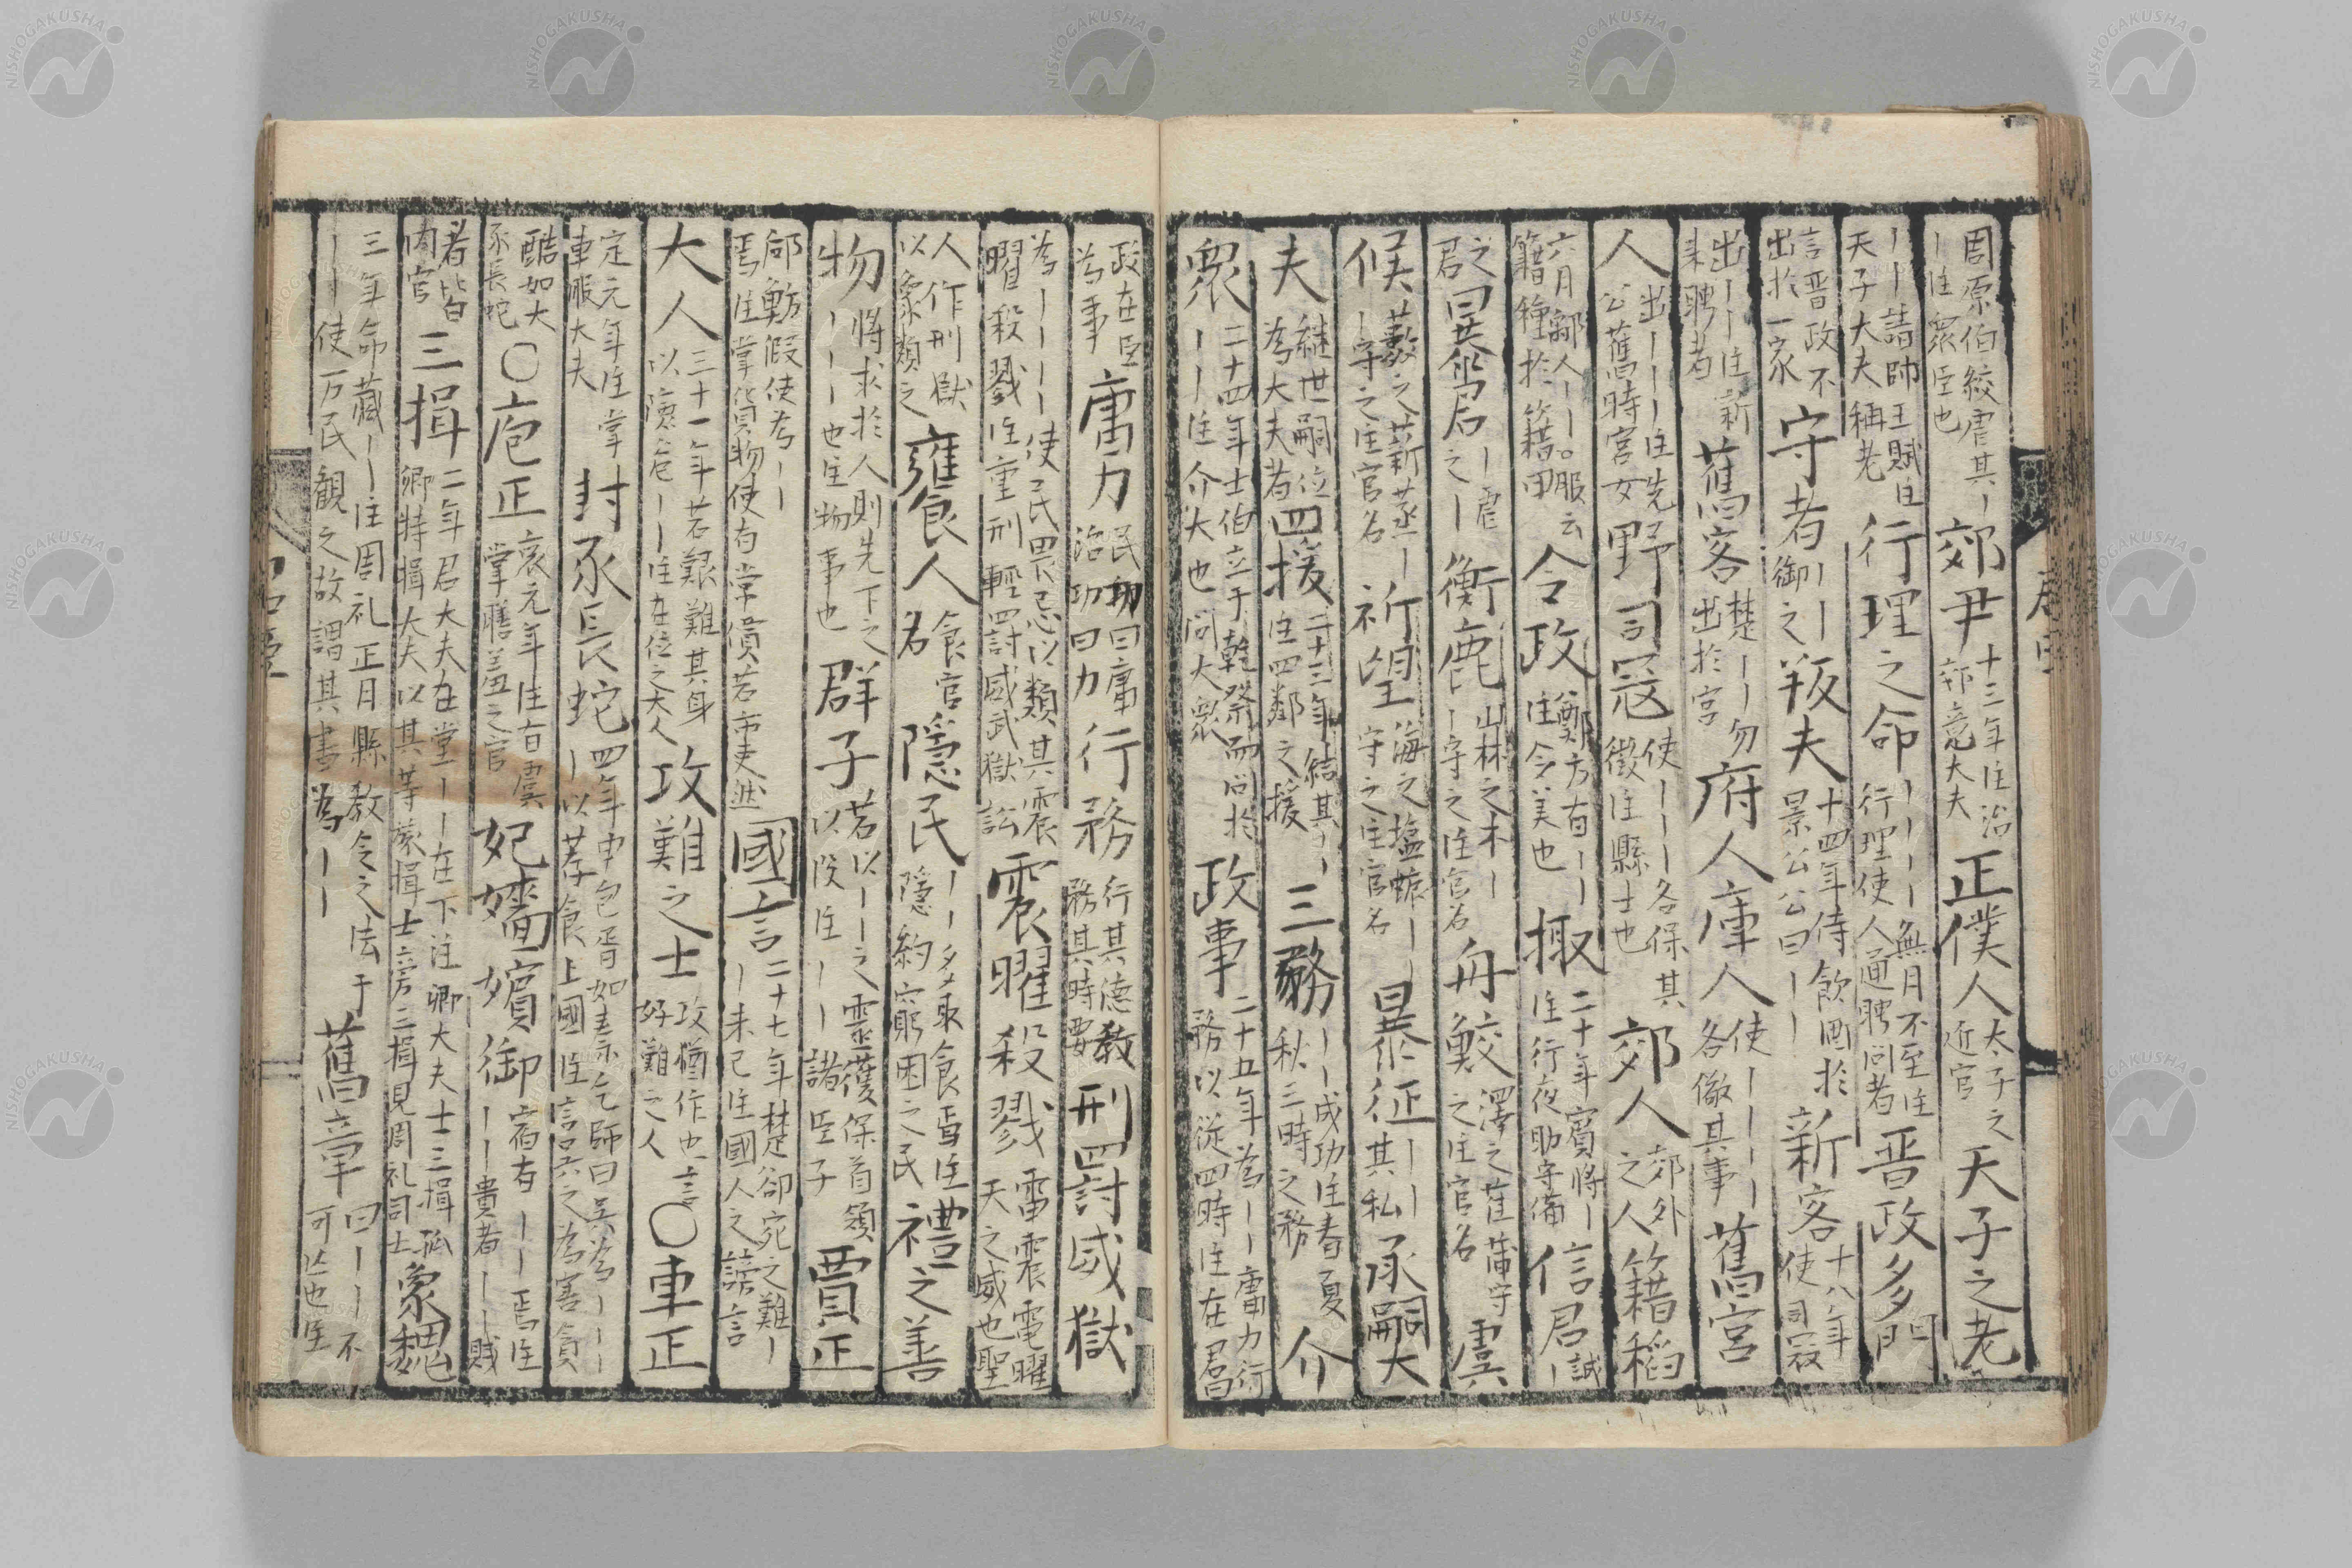 周原伯絞虐其｜｜注衆臣也 郊尹 十三年注治郊竟大夫 正僕人 太子之近官 天子之老
｜｜請帥王賦注天子大夫稱老 行理之命 ｜｜｜｜無月不至注行理使人通聘問者 晋政多門
言晋政不出於一家 守者 ｜｜御之 叛夫 十四年侍飲酒於景公公曰｜｜ 新客 十八年使司寇
出｜｜注新来聘者 舊客 楚｜｜勿出於宮 府人庫人 使｜｜｜｜各儆其事 舊宮
人 出｜｜｜注先公舊時宮女 野司寇 使｜｜｜各保其徴注縣士也 郊人 郊外之人 籍稻
六月鄅人｜｜○服云籍種於籍田 令政 鄭方有｜｜注令美也 掫 二十年賓將｜注行夜助守備 信君 誠｜
之君 暴君 ｜虐之｜ 衡鹿 山林之木｜｜守之注官名 舟鮫 澤之萑蒲守之注官名 虞
候 薮之薪蒸｜｜守之注官名 祈望 海之塩蜄｜｜守之注官名 暴征 ｜｜其私 承嗣大
夫 継世嗣位為大夫者 四援 二十三年結其｜｜注四鄰之援 三務 ｜｜成功注春夏秋三時之務 介
衆 二十四年士伯立于乾祭而問於｜｜注介大也問大衆 政事 二十五年為｜｜庸力行務以従四時注在君
政在臣為事 庸力 民功曰庸治功曰力 行務 行其徳教務其時要 刑罸威獄
為｜｜｜｜使民畏忌以類其震曜殺戮注重刑輕罸威武獄訟 震曜殺戮 雷震電曜天之威也聖
人作刑獄以象類之 饔人 食官名 隠民 ｜｜多取食焉注隠約窮困之民 禮之善
物 將求於人則先下之｜｜｜也注物事也 群子 若以｜｜之靈獲保首領以役注｜｜諸臣子 賈正
郈魴假使為｜｜焉注掌貨物使有常價若市吏 國言 二十七年楚郤宛之難｜｜未已注國人之謗言
大人 三十一年若艱難其身以険危｜｜注在位之大人 攻難之士 攻猶作也｜｜好難之人 ○車正
定元年注掌車服大夫 封豕長蛇 四年申包胥如秦乞師曰呉為｜｜｜｜以荐食上國注言呉之為害貪
酷如大豕長蛇 ○庖正 哀元年注有虞掌膳羞之官 妃嬙嬪御 宿有｜｜焉注｜｜貴者｜｜賎
者皆内官 三揖 二年君大夫在堂｜｜在下注卿大夫士三揖孤卿特揖大夫以其等旅揖士旁三揖見周礼司士 象魏
三年命藏｜｜注周礼正月縣教令之法于｜｜使万民観之故謂其書為｜｜ 舊章 曰｜｜不可亡也注